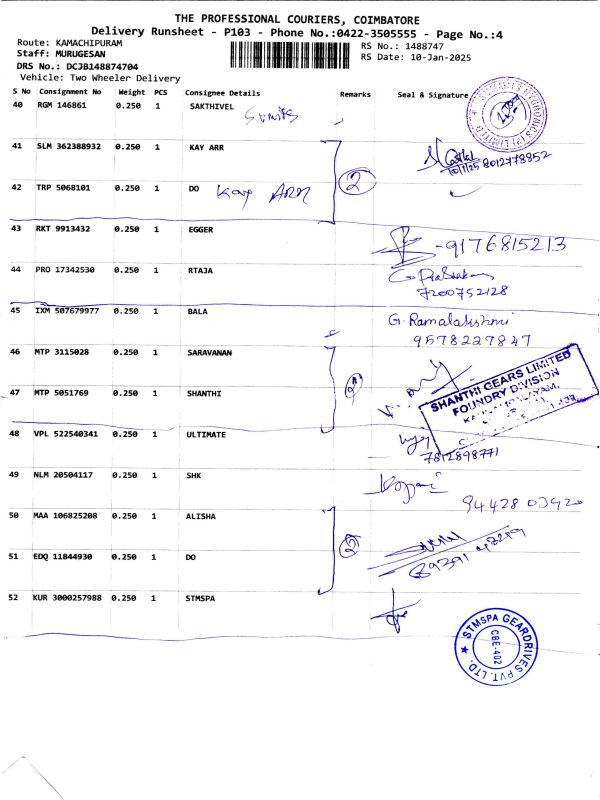 THE PROFESSIONAL COURIERS, COIMBATORE
Delivery Runsheet - P103 - Phone No.:0422-3505555 - Page No.:4
Route: KAMACHIPURAM
RS No.: 1488747
Staff: MURUGESAN
RS Date: 10-Jan-2025
DRS No.: DCJB148874704
Vehicle: Two Wheeler Delivery
S No Consignment No Weight PCS Consignee Details Remarks Seal & Signature
40 RGM 146861 0.250 1 SAKTHIVEL
41 SLM 362388932 0.250 1 KAY ARR
10/1/25 8012778852
42 TRP 5068101 0.250 1 DO Kay ARR 2
43 RKT 9913432 0.250 1 EGGER
-9176815213
44 PRO 17342530 0.250 1 RTAJA
G. Prabakaran
7200752128
45 IXM 507679977 0.250 1 BALA
G. Ramalakshmi
9578227847
46 MTP 3115028 0.250 1 SARAVANAN
47 MTP 5051769 0.250 1 SHANTHI 2
SHANTHI GEARS LIMITED
FOUNDRY DIVISION
48 VPL 522540341 0.250 1 ULTIMATE
7812898771
49 NLM 20504117 0.250 1 SHK
94428 00420
50 MAA 106825208 0.250 1 ALISHA
51 EDQ 11844930 0.250 1 DO 2
52 KUR 3000257988 0.250 1 STMSPA
STMSPA GEARDRIVES PVT. LTD.
CBE-402